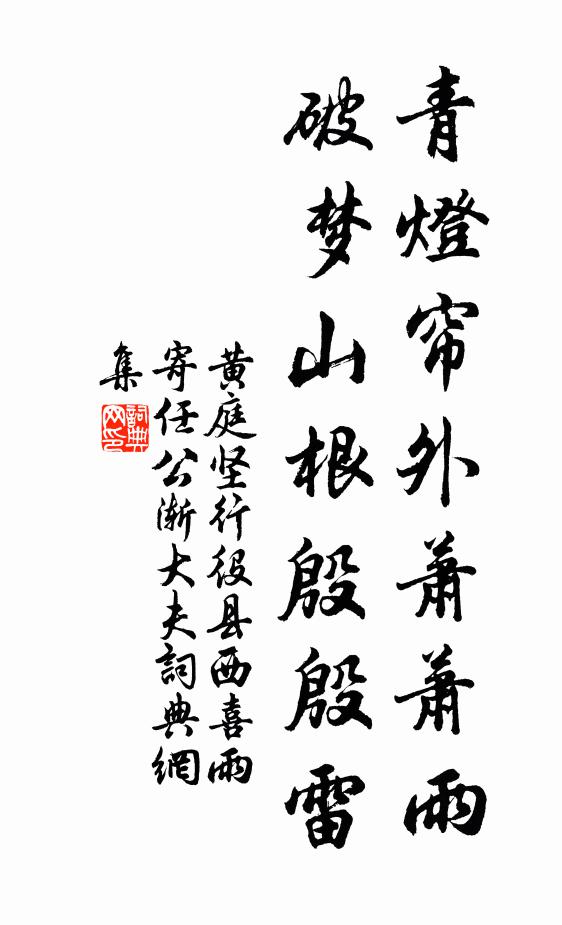 青燈帘外蕭蕭雨
破梦山根殷殷雷
黄庭坚行役县西喜雨
寄任公渐大夫詞典網
集
詞典
网印